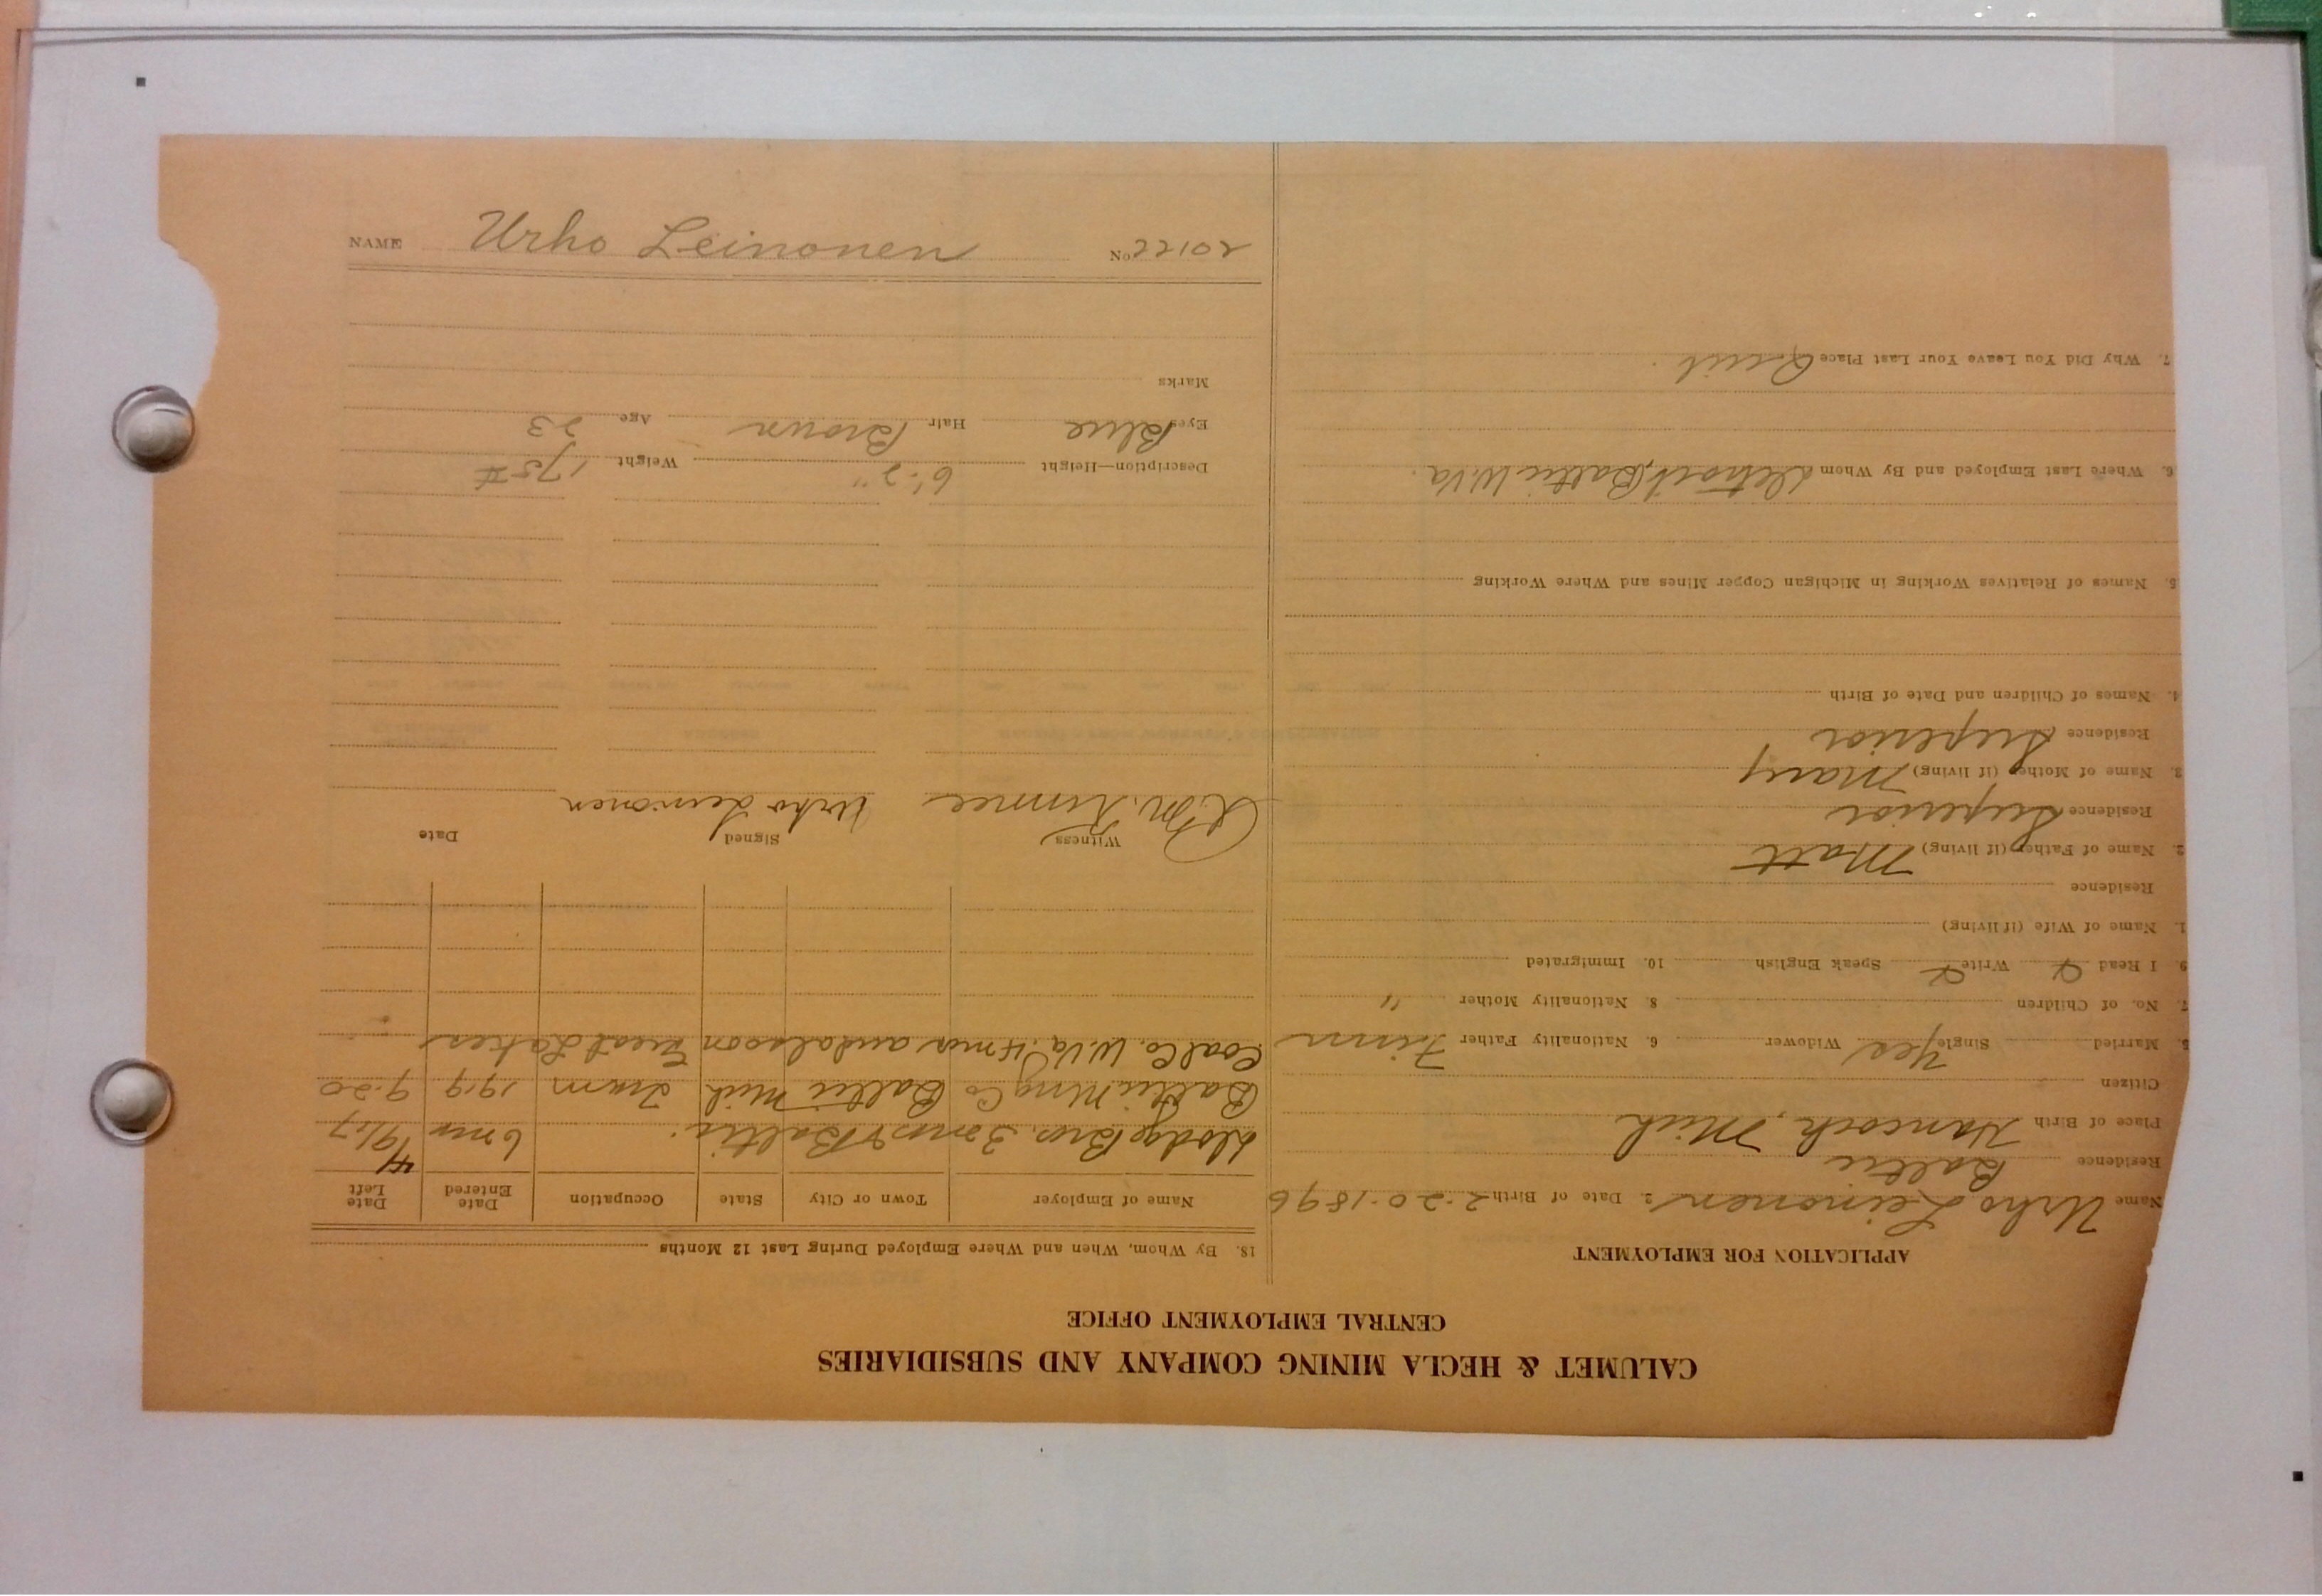 CALUMET & HECLA MINING COMPANY AND SUBSIDIARIES
CENTRAL EMPLOYMENT OFFICE
APPLICATION FOR EMPLOYMENT
Name Urho Leinonen 2. Date of Birth 2-20-1896
Residence Baltic
Place of Birth Hancock, Mich
Citizen
5. Married Single Yes Widower 6. Nationality Father Finn
7. No. of Children 8. Nationality Mother "
9. I Read Write Speak English 10. Immigrated
1. Name of Wife (if living)
Residence
2. Name of Father (if living) Matt
Residence Superior
3. Name of Mother (if living) Mary
Residence Superior
4. Names of Children and Date of Birth
5. Names of Relatives Working in Michigan Copper Mines and Where Working
6. Where Last Employed and By Whom Detroit, Baltic W.Va.
7. Why Did You Leave Your Last Place Quit
18. By Whom, When and Where Employed During Last 12 Months
Name of Employer Town or City State Occupation Date Entered Date Left
Dodge Bros. 3 mos & Baltic. 6 mo
Baltic Mng Co Baltic Mich Tram 1919 9-20
Coal Co. W.Va. 4 mos and also on Great Lakes
Witness Signed Date
Urho Leinonen
Description—Height 6'-2" Weight 175#
Eyes Blue Hair Brown Age 23
Marks
NAME Urho Leinonen No 20122